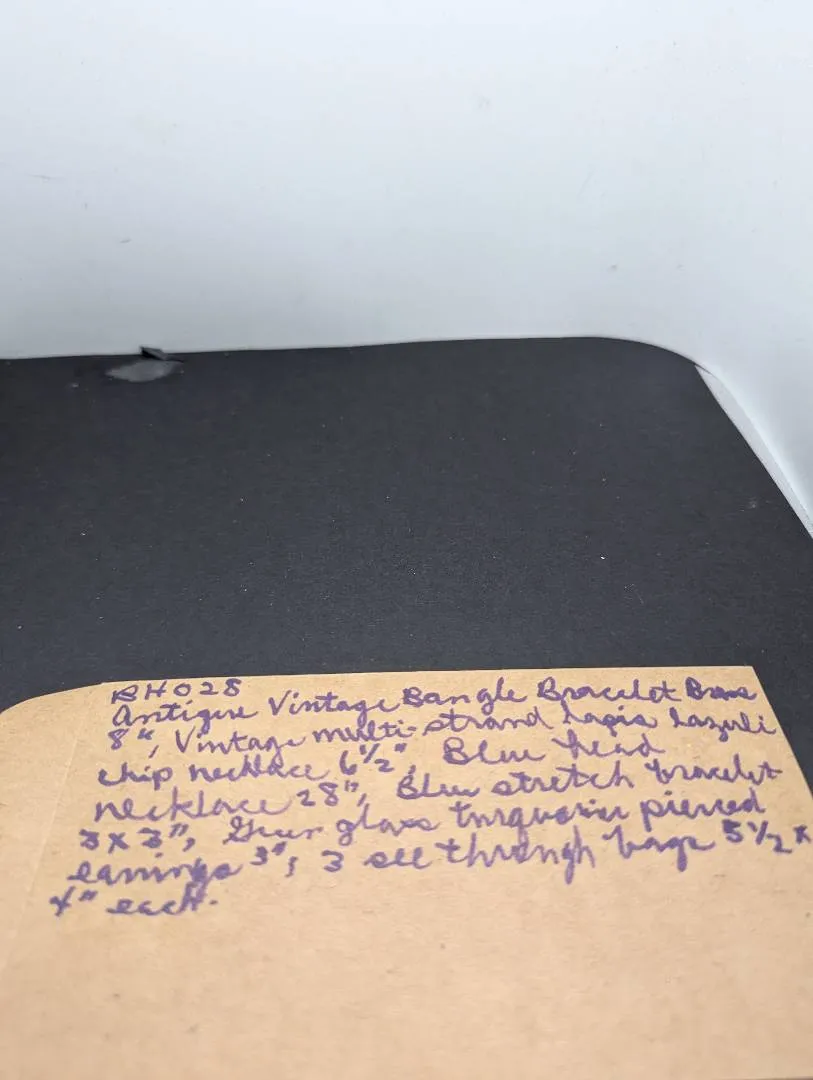 RH028
Antique Vintage Bangle Bracelet Brass
8", Vintage multi-strand lapis lazuli
chip necklace 6 1/2", Blue bead
necklace 28", Blue stretch bracelet
3 x 3", Green glass turquoise pierced
earrings 3", 3 see through bags 5 1/2 x
4" each.